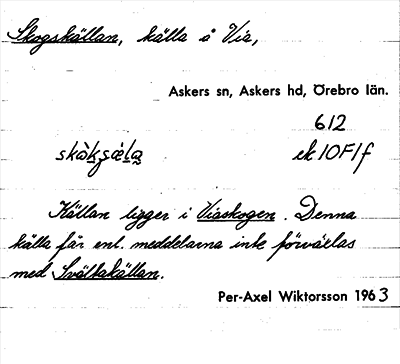 Skogskällan, källa å Via,
Askers sn, Askers hd, Örebro län.
612
ek 10F1f
Källan ligger i Viaskogen. Denna
källa får enl. meddelarna inte förväxlas
med Svältakällan.
Per-Axel Wiktorsson 1963